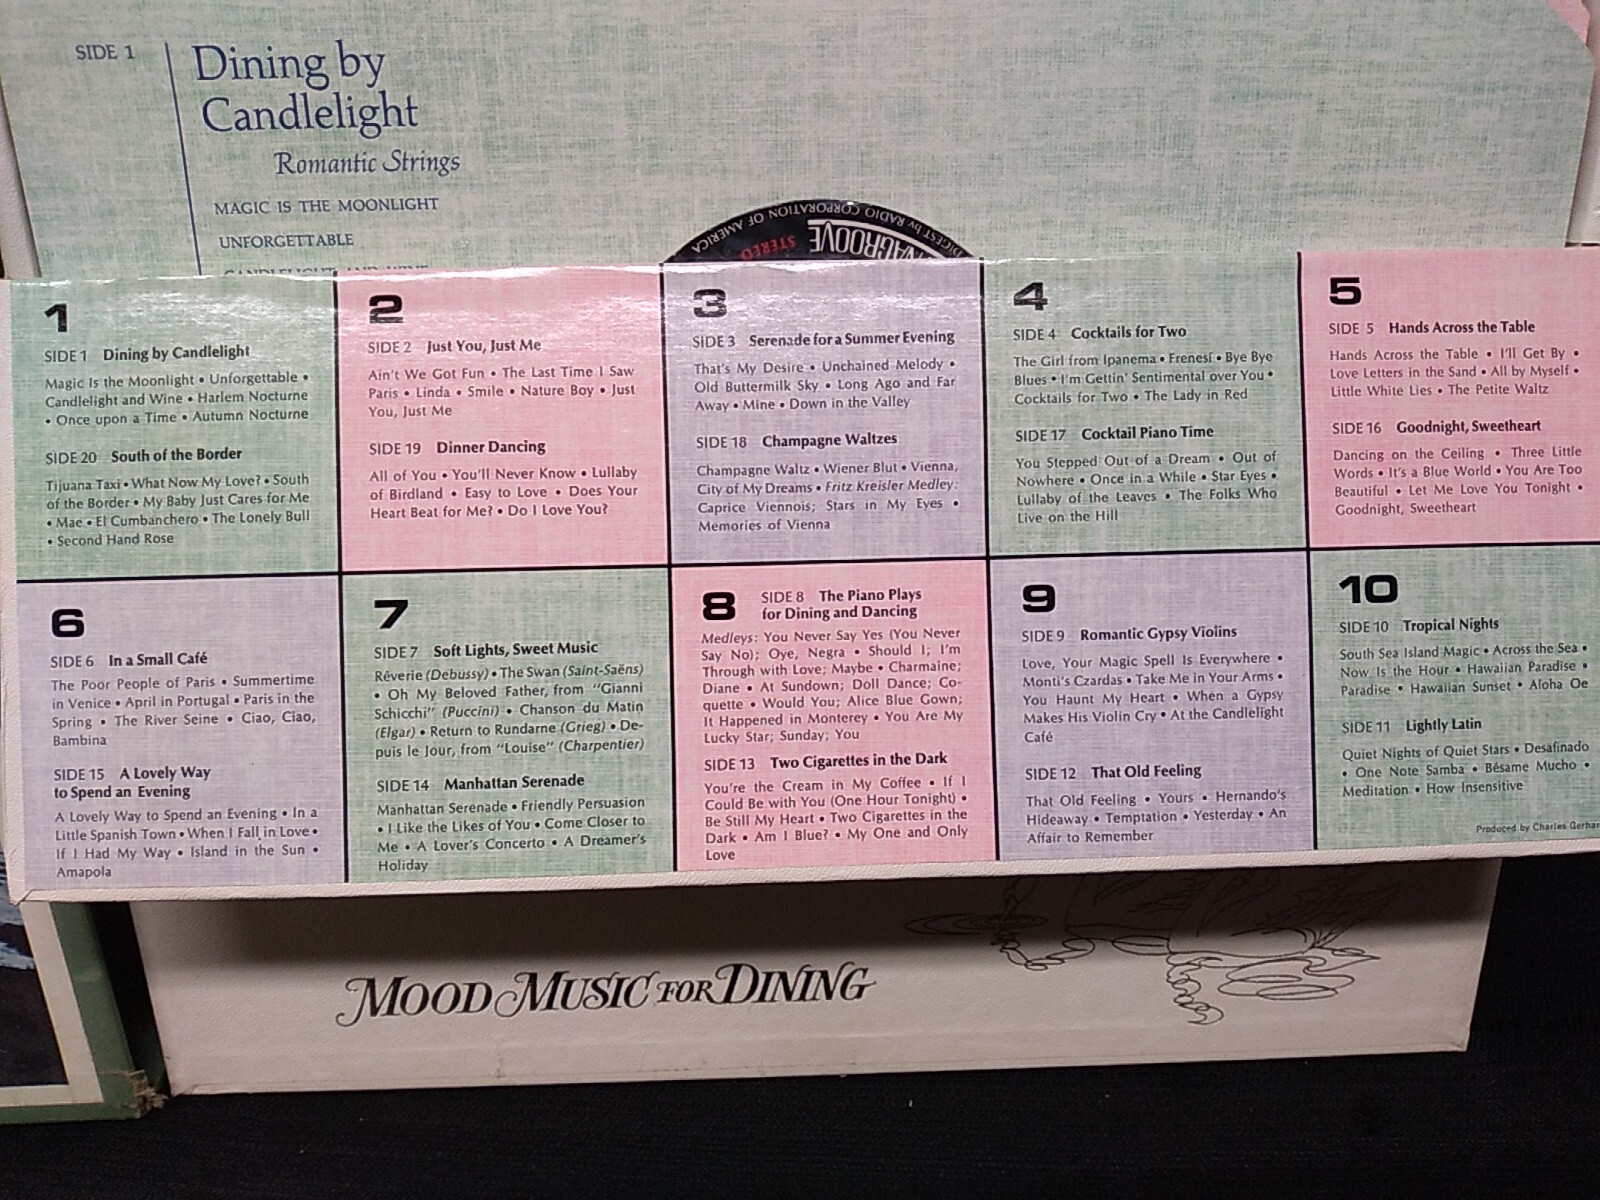 SIDE 1
Dining by
Candlelight
Romantic Strings
MAGIC IS THE MOONLIGHT
UNFORGETTABLE
CANDLELIGHT AND WINE
DIGEST by RADIO CORPORATION OF AMERICA
STEREO
1
SIDE 1 Dining by Candlelight
Magic Is the Moonlight • Unforgettable •
Candlelight and Wine • Harlem Nocturne
• Once upon a Time • Autumn Nocturne
SIDE 20 South of the Border
Tijuana Taxi • What Now My Love? • South
of the Border • My Baby Just Cares for Me
• Mae • El Cumbanchero • The Lonely Bull
• Second Hand Rose
2
SIDE 2 Just You, Just Me
Ain't We Got Fun • The Last Time I Saw
Paris • Linda • Smile • Nature Boy • Just
You, Just Me
SIDE 19 Dinner Dancing
All of You • You'll Never Know • Lullaby
of Birdland • Easy to Love • Does Your
Heart Beat for Me? • Do I Love You?
3
SIDE 3 Serenade for a Summer Evening
That's My Desire • Unchained Melody •
Old Buttermilk Sky • Long Ago and Far
Away • Mine • Down in the Valley
SIDE 18 Champagne Waltzes
Champagne Waltz • Wiener Blut • Vienna,
City of My Dreams • Fritz Kreisler Medley:
Caprice Viennois; Stars in My Eyes •
Memories of Vienna
4
SIDE 4 Cocktails for Two
The Girl from Ipanema • Frenesí • Bye Bye
Blues • I'm Gettin' Sentimental over You •
Cocktails for Two • The Lady in Red
SIDE 17 Cocktail Piano Time
You Stepped Out of a Dream • Out of
Nowhere • Once in a While • Star Eyes •
Lullaby of the Leaves • The Folks Who
Live on the Hill
5
SIDE 5 Hands Across the Table
Hands Across the Table • I'll Get By •
Love Letters in the Sand • All by Myself •
Little White Lies • The Petite Waltz
SIDE 16 Goodnight, Sweetheart
Dancing on the Ceiling • Three Little
Words • It's a Blue World • You Are Too
Beautiful • Let Me Love You Tonight •
Goodnight, Sweetheart
6
SIDE 6 In a Small Café
The Poor People of Paris • Summertime
in Venice • April in Portugal • Paris in the
Spring • The River Seine • Ciao, Ciao,
Bambina
SIDE 15 A Lovely Way
to Spend an Evening
A Lovely Way to Spend an Evening • In a
Little Spanish Town • When I Fall in Love •
If I Had My Way • Island in the Sun •
Amapola
7
SIDE 7 Soft Lights, Sweet Music
Rêverie (Debussy) • The Swan (Saint-Saëns)
• Oh My Beloved Father, from "Gianni
Schicchi" (Puccini) • Chanson du Matin
(Elgar) • Return to Rundarne (Grieg) • De-
puis le Jour, from "Louise" (Charpentier)
SIDE 14 Manhattan Serenade
Manhattan Serenade • Friendly Persuasion
• I Like the Likes of You • Come Closer to
Me • A Lover's Concerto • A Dreamer's
Holiday
8
SIDE 8 The Piano Plays
for Dining and Dancing
Medleys: You Never Say Yes (You Never
Say No); Oye, Negra • Should I; I'm
Through with Love; Maybe • Charmaine;
Diane • At Sundown; Doll Dance; Co-
quette • Would You; Alice Blue Gown;
It Happened in Monterey • You Are My
Lucky Star; Sunday; You
SIDE 13 Two Cigarettes in the Dark
You're the Cream in My Coffee • If I
Could Be with You (One Hour Tonight) •
Be Still My Heart • Two Cigarettes in the
Dark • Am I Blue? • My One and Only
Love
9
SIDE 9 Romantic Gypsy Violins
Love, Your Magic Spell Is Everywhere •
Monti's Czardas • Take Me in Your Arms •
You Haunt My Heart • When a Gypsy
Makes His Violin Cry • At the Candlelight
Café
SIDE 12 That Old Feeling
That Old Feeling • Yours • Hernando's
Hideaway • Temptation • Yesterday • An
Affair to Remember
10
SIDE 10 Tropical Nights
South Sea Island Magic • Across the Sea •
Now Is the Hour • Hawaiian Paradise •
Paradise • Hawaiian Sunset • Aloha Oe
SIDE 11 Lightly Latin
Quiet Nights of Quiet Stars • Desafinado
• One Note Samba • Bésame Mucho •
Meditation • How Insensitive
Produced by Charles Gerhar
MOOD MUSIC FOR DINING